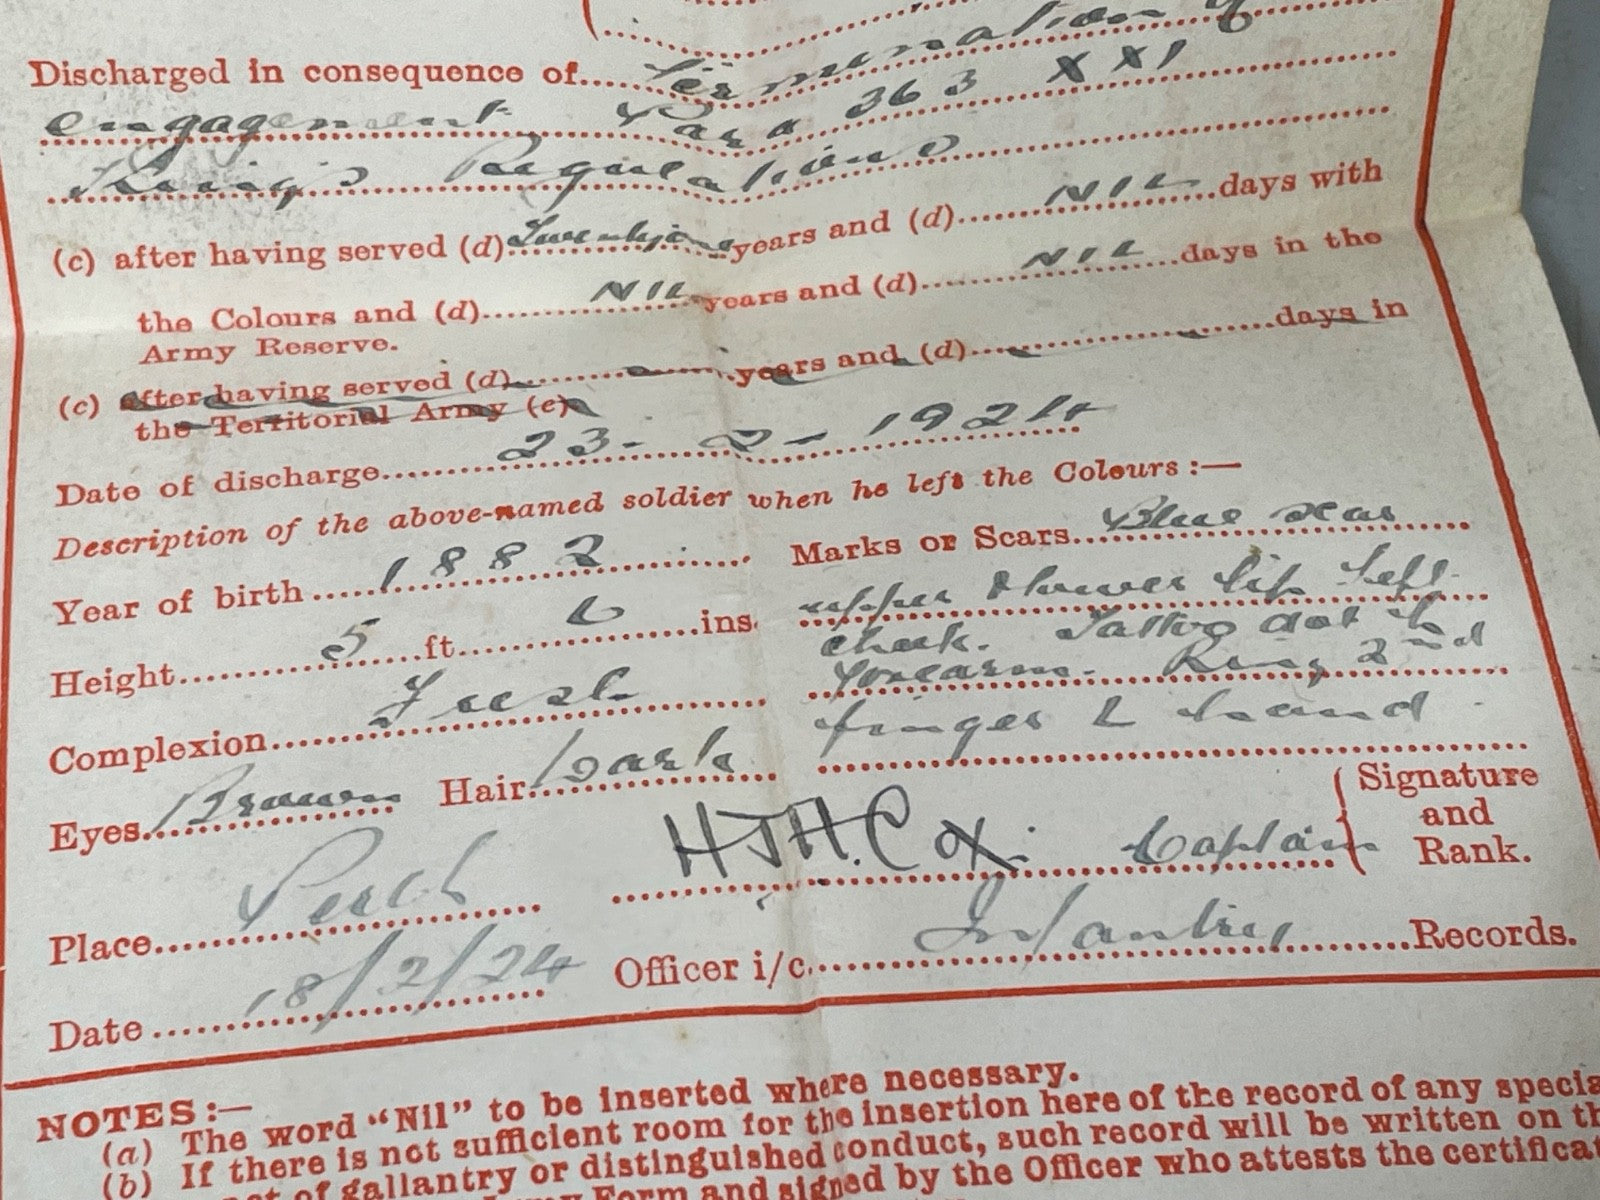 Discharged in consequence of Termination of
engagement Para 363 XXI
King's Regulations
(c) after having served (d) Twenty one years and (d) NIL days with
the Colours and (d) NIL years and (d) NIL days in the
Army Reserve.
(c) after having served (d) years and (d) days in
the Territorial Army (e)
Date of discharge 23-2-1924
Description of the above-named soldier when he left the Colours :—
Year of birth 1882 Marks or Scars Blue scar
Height 5 ft. 6 ins. upper & lower lip left
cheek. Tattoo dot L
Complexion Fresh forearm. Ring 2nd
finger L hand.
Eyes Brown Hair Dark
HJH. Cox. Captain Signature and Rank.
Place Perth
Officer i/c. Infantry Records.
Date 18/2/24
NOTES :—
(a) The word "Nil" to be inserted where necessary.
(b) If there is not sufficient room for the insertion here of the record of any specia
of gallantry or distinguished conduct, such record will be written on th
Form and signed by the Officer who attests the certificat